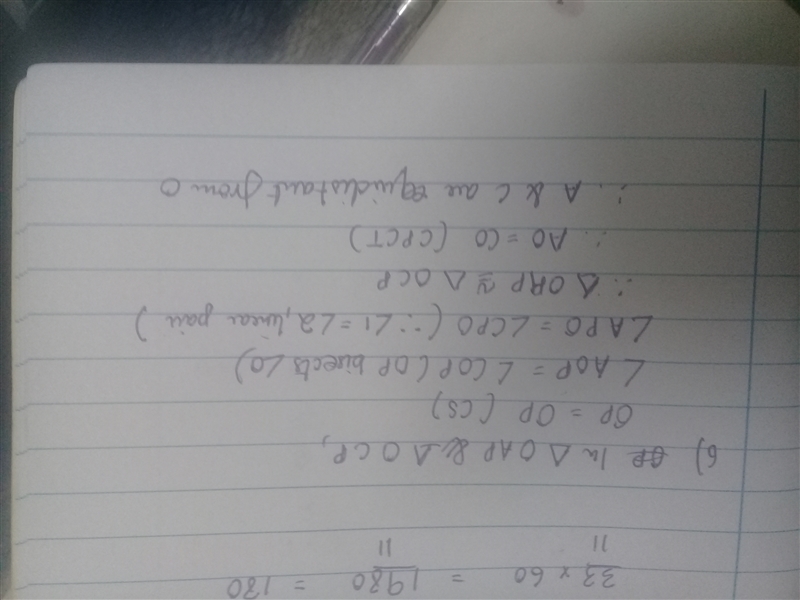 33/11 × 60 = 1980/11 = 180
6) In △ OAP & △ OCP,
OP = OP (CS)
∠AOP = ∠COP (OP bisects ∠O)
∠APO = ∠CPO (∵ ∠1 = ∠2, linear pair)
∴ △ OAP ≅ △ OCP
∴ AO = CO (CPCT)
∴ A & C are equidistant from O